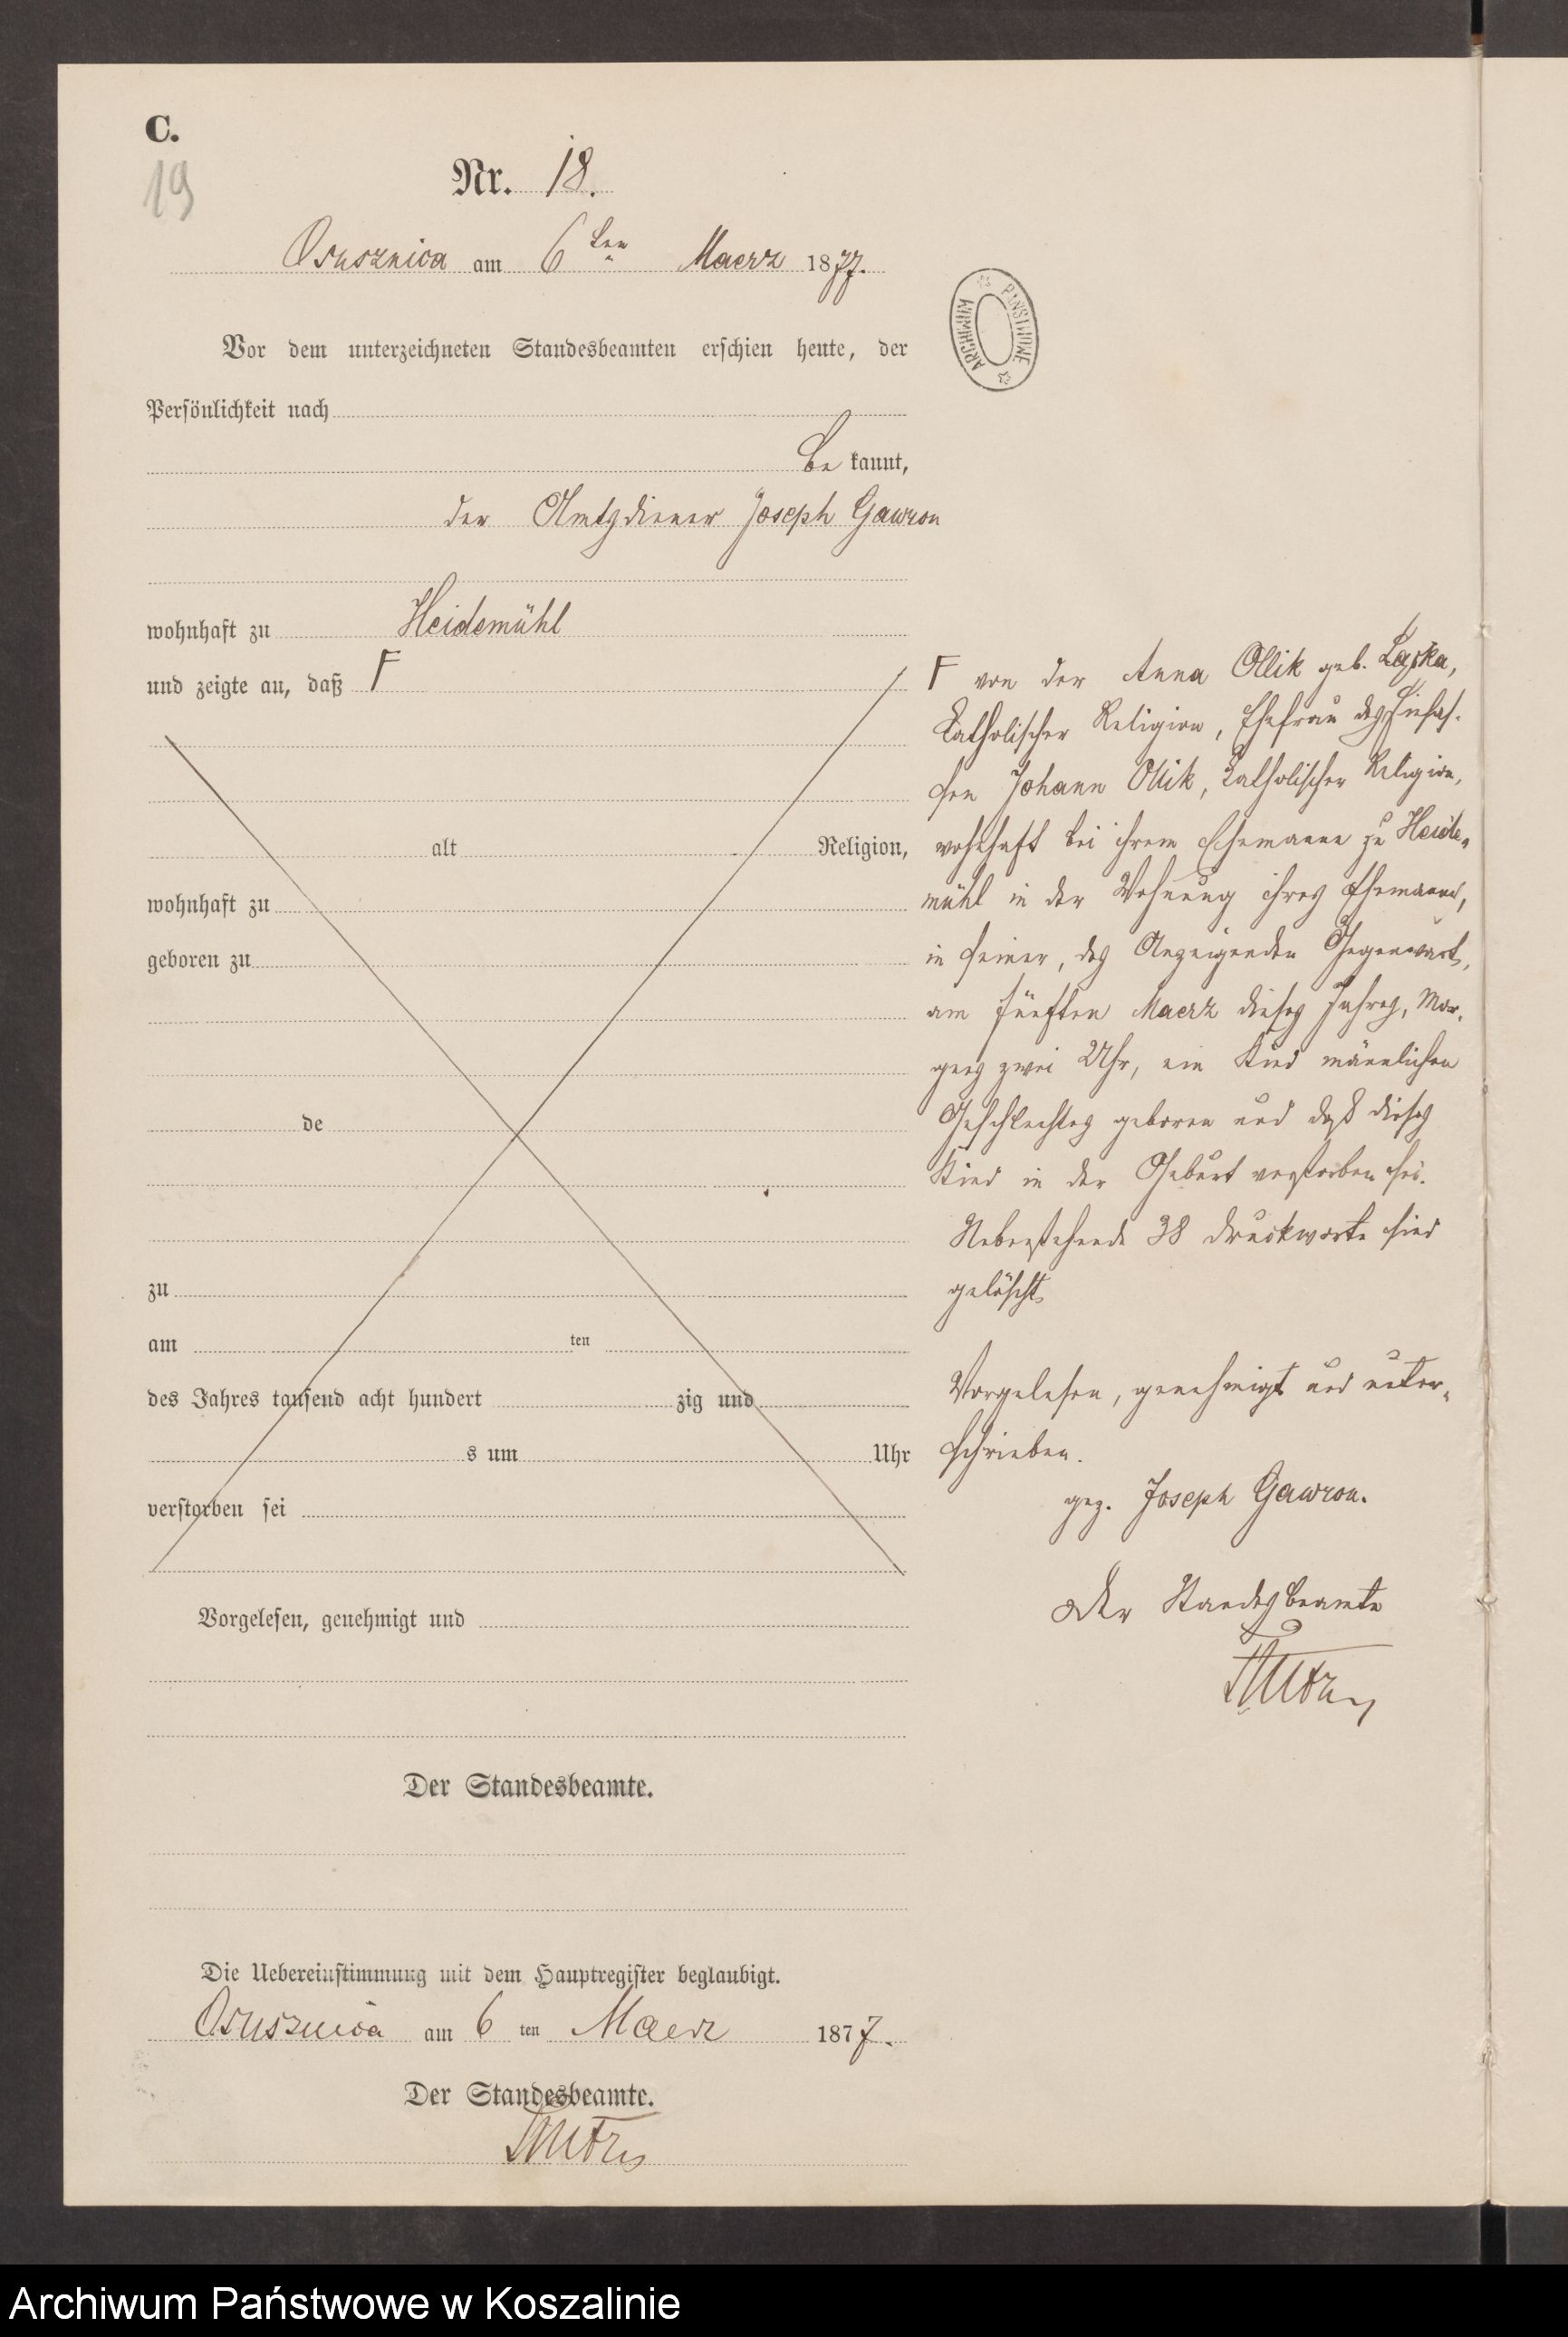 C.
19
Nr. 18.
Osusznica am 6ten Maerz 1877.
Vor dem unterzeichneten Standesbeamten erschien heute, der
Persönlichkeit nach
be kannt,
der Amtsdiener Joseph Gawron
wohnhaft zu Heidemühl
und zeigte an, daß F
alt Religion,
wohnhaft zu
geboren zu
de
zu
am ten
des Jahres tausend acht hundert zig und
s um Uhr
verstorben sei
Vorgelesen, genehmigt und
Der Standesbeamte.
Die Uebereinstimmung mit dem Hauptregister beglaubigt.
Osusznica am 6 ten Maerz 1877.
Der Standesbeamte.
ARCHIWUM PAŃSTWOWE
F von der Anna Ollik geb. Laska,
katholischer Religion, Ehefrau des Einsas-
sen Johann Ollik, katholischer Religion,
wohnhaft bei ihrem Ehemanne zu Heide-
mühl in der Wohnung ihres Ehemanns,
in seiner, des Anzeigenden Gegenwart,
am fünften Maerz dieses Jahres, Mor-
gens zwei Uhr, ein Kind männlichen
Geschlechtes geboren und daß dieses
Kind in der Geburt verstorben sei.
Nebenstehende 38 Druckworte sind
gelöscht
Vorgelesen, genehmigt und unter-
schrieben.
gez. Joseph Gawron.
Der Standesbeamte
Archiwum Państwowe w Koszalinie